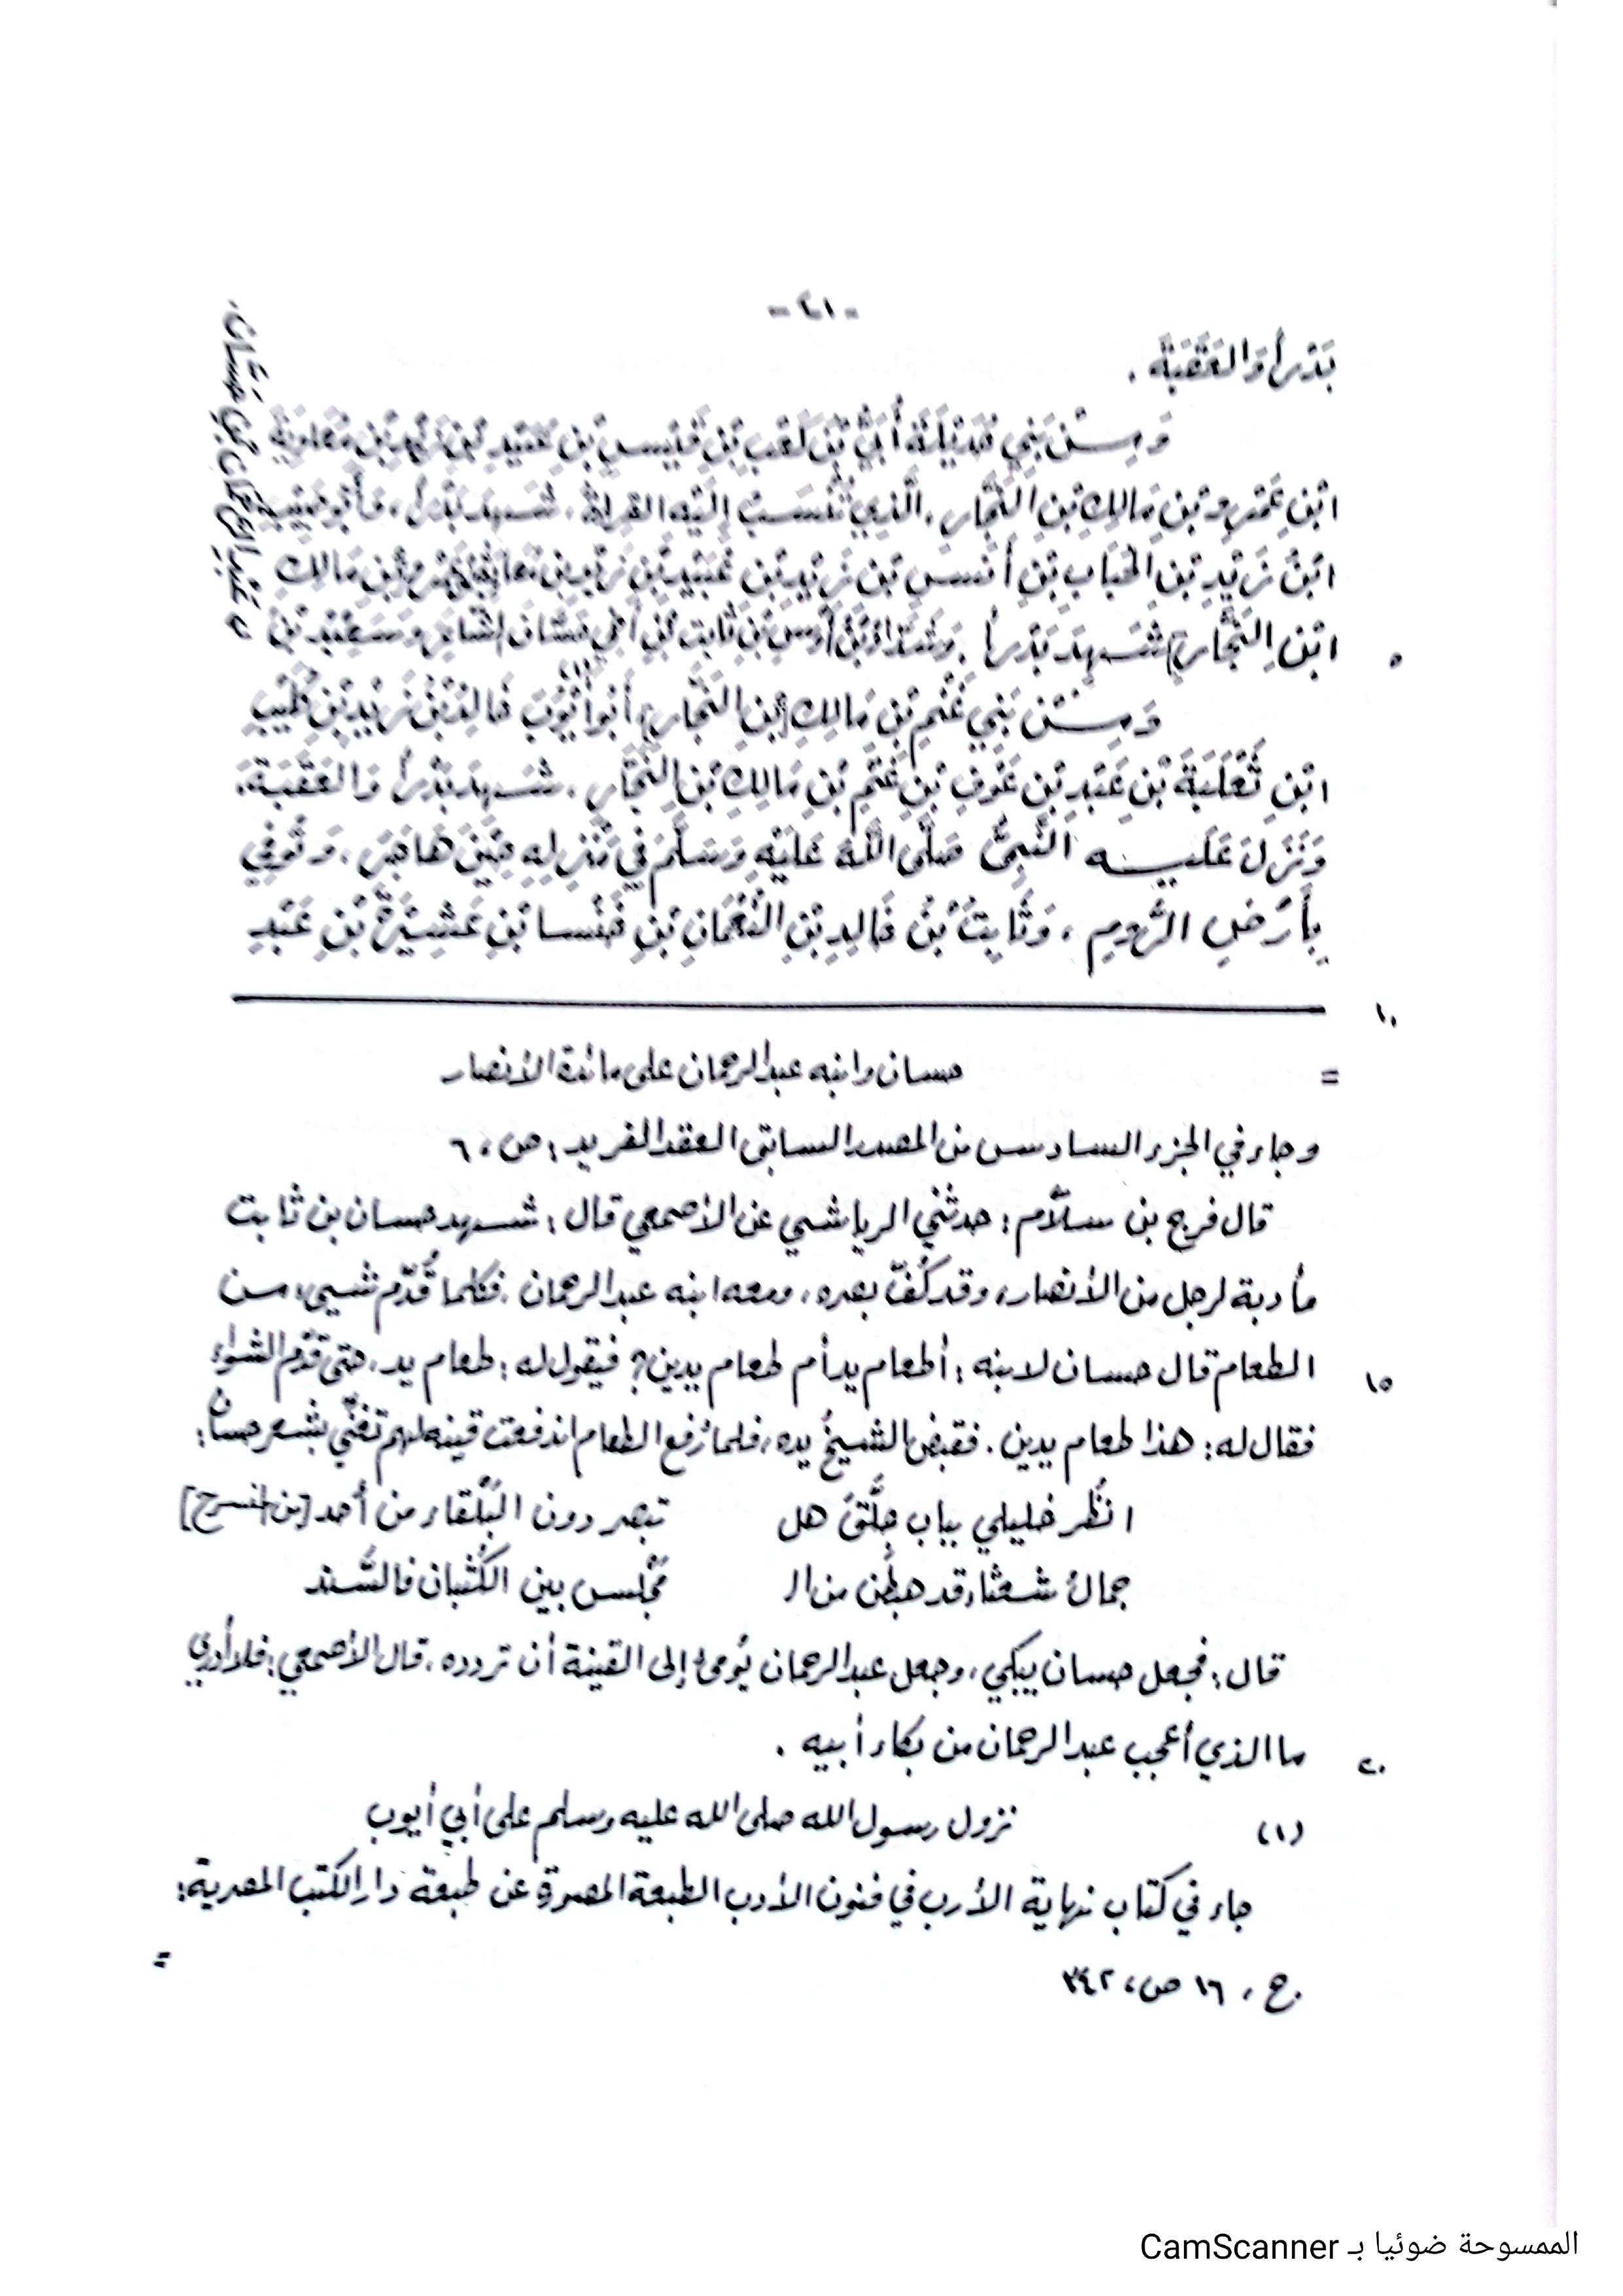 - ٤١ -
بَدْراً وَالعَقَبَةَ .
وَمِنْ بَنِي حُدَيْلَةَ أُبَيُّ بْنُ كَعْبِ بْنِ قَيْسِ بْنِ عُبَيْدِ بْنِ زَيْدِ بْنِ مُعَاوِيَةَ
ابْنِ عَمْرِو بْنِ مَالِكِ بْنِ النَّجَّارِ، الَّذِي تُنْسَبُ إِلَيْهِ القِرَاءَةُ، شَهِدَ بَدْراً، وَأَبُو حَبِيبِ
ابْنُ زَيْدِ بْنِ الحُبَابِ بْنِ أَنَسِ بْنِ زَيْدِ بْنِ عُبَيْدِ بْنِ زَيْدِ بْنِ مُعَاوِيَةَ بْنِ عَمْرِو بْنِ مَالِكِ
ابْنِ النَّجَّارِ شَهِدَ بَدْراً. وَشَدَّادُ بْنُ أَوْسِ بْنِ ثَابِتِ بْنِ أَخِي حَسَّانَ الشَّاعِرِ وَسَعِيْدُ بْنُ
عَبْدِ الرَّحْمَانِ بْنِ حَسَّانَ.
وَمِنْ بَنِي غَنْمِ بْنِ مَالِكِ [بْنِ النَّجَّارِ] أَبُو أَيُّوْبَ (١) خَالِدُ بْنُ زَيْدِ بْنِ كُلَيْبِ
ابْنِ ثَعْلَبَةَ بْنِ عَبْدِ بْنِ عَوْفِ بْنِ غَنْمِ بْنِ مَالِكِ بْنِ النَّجَّارِ، شَهِدَ بَدْراً وَالعَقَبَةَ،
وَنَزَلَ عَلَيْهِ النَّبِيُّ صَلَّى اللَّهُ عَلَيْهِ وَسَلَّمَ فِي مَنْزِلِهِ حِيْنَ هَاجَرَ، وَتُوُفِّي
بِأَرْضِ الرُّومِ، وَثَابِتُ بْنُ خَالِدِ بْنِ النُّعْمَانِ بْنِ خَنْسَا بْنِ عَشِيْرَةَ بْنِ عَبْدِ
= حسان وابنه عبد الرحمان على مائدة الأنصار
وجاء في الجزء السادس من المصدر السابق العقد الفريد: ص، ٦
قال فرج بن سلّام: حدثني الرياشي عن الأصمعي قال: شهد حسان بن ثابت
مأدبة لرجل من الأنصار، وقد كُفّ بصره، ومعه ابنه عبد الرحمان، فكلما قُدّم شيء من
الطعام قال حسان لابنه: أطعام يد أم طعام يدين؟ فيقول له: طعام يد، حتى قُدّم الشواء
فقال له: هذا طعام يدين. فقبض الشيخُ يده، فلما رُفع الطعام اندفعت قينة لهم تغنّي بشعر حسان:
انْظُر خليلي بباب جِلَّقَ هل تبصر دون البَلْقاء من أحد [من المنسرح]
جمالُ شعثاء قد هبطن من ال مَجْلس بين الكُثْبان فالسَّند
قال: فجعل حسان يبكي، وجعل عبد الرحمان يُومئ إلى القينة أن تردده، قال الأصمعي: فلا أدري
ما الذي أعجب عبد الرحمان من بكاء أبيه .
(١) نزول رسول الله صلى الله عليه وسلم على أبي أيوب
جاء في كتاب نهاية الأرب في فنون الأدب الطبعة المصورة عن طبعة دار الكتب المصرية:
ج، ١٦ ص، ٣٤٢
=
٥
١٠
١٥
٢٠
الممسوحة ضوئيا بـ CamScanner